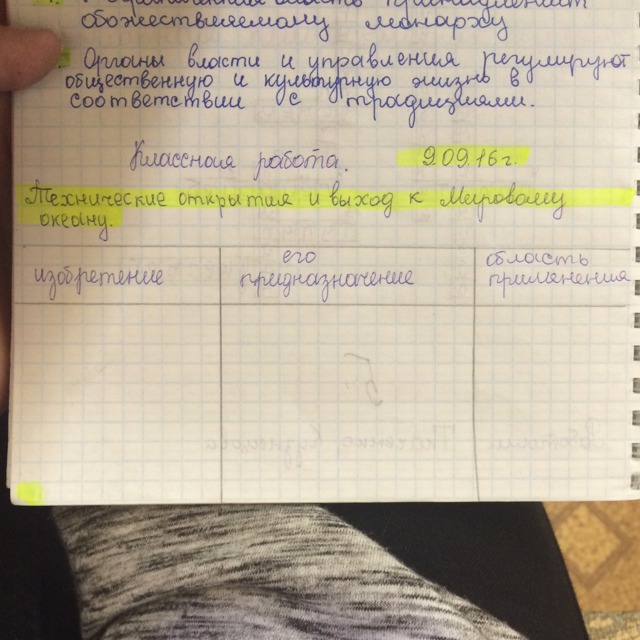 обожествляемому монарху
Органы власти и управления регулируют
общественную и культурную жизнь в
соответствии с традициями.
Классная работа. 9.09.16г.
Технические открытия и выход к Мировому
океану.
изобретение
его
предназначение
область
применения